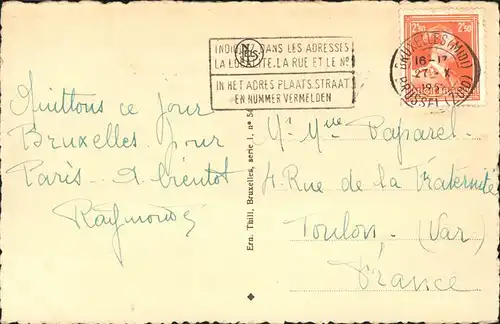 INDIQUEZ DANS LES ADRESSES
LA LOCALITE, LA RUE ET LE No
IN HET ADRES PLAATS, STRAAT
EN NUMMER VERMELDEN
2,50 2,50
BRUXELLES (MIDI)
16-17
27 X
BRUSSEL
Quittons ce jour
Bruxelles pour
Paris - A bientôt
Raymonde
Ern. Thill, Bruxelles, série 1, no
Mr Mme Paparel
4. Rue de la Fraternité
Toulon (Var)
France